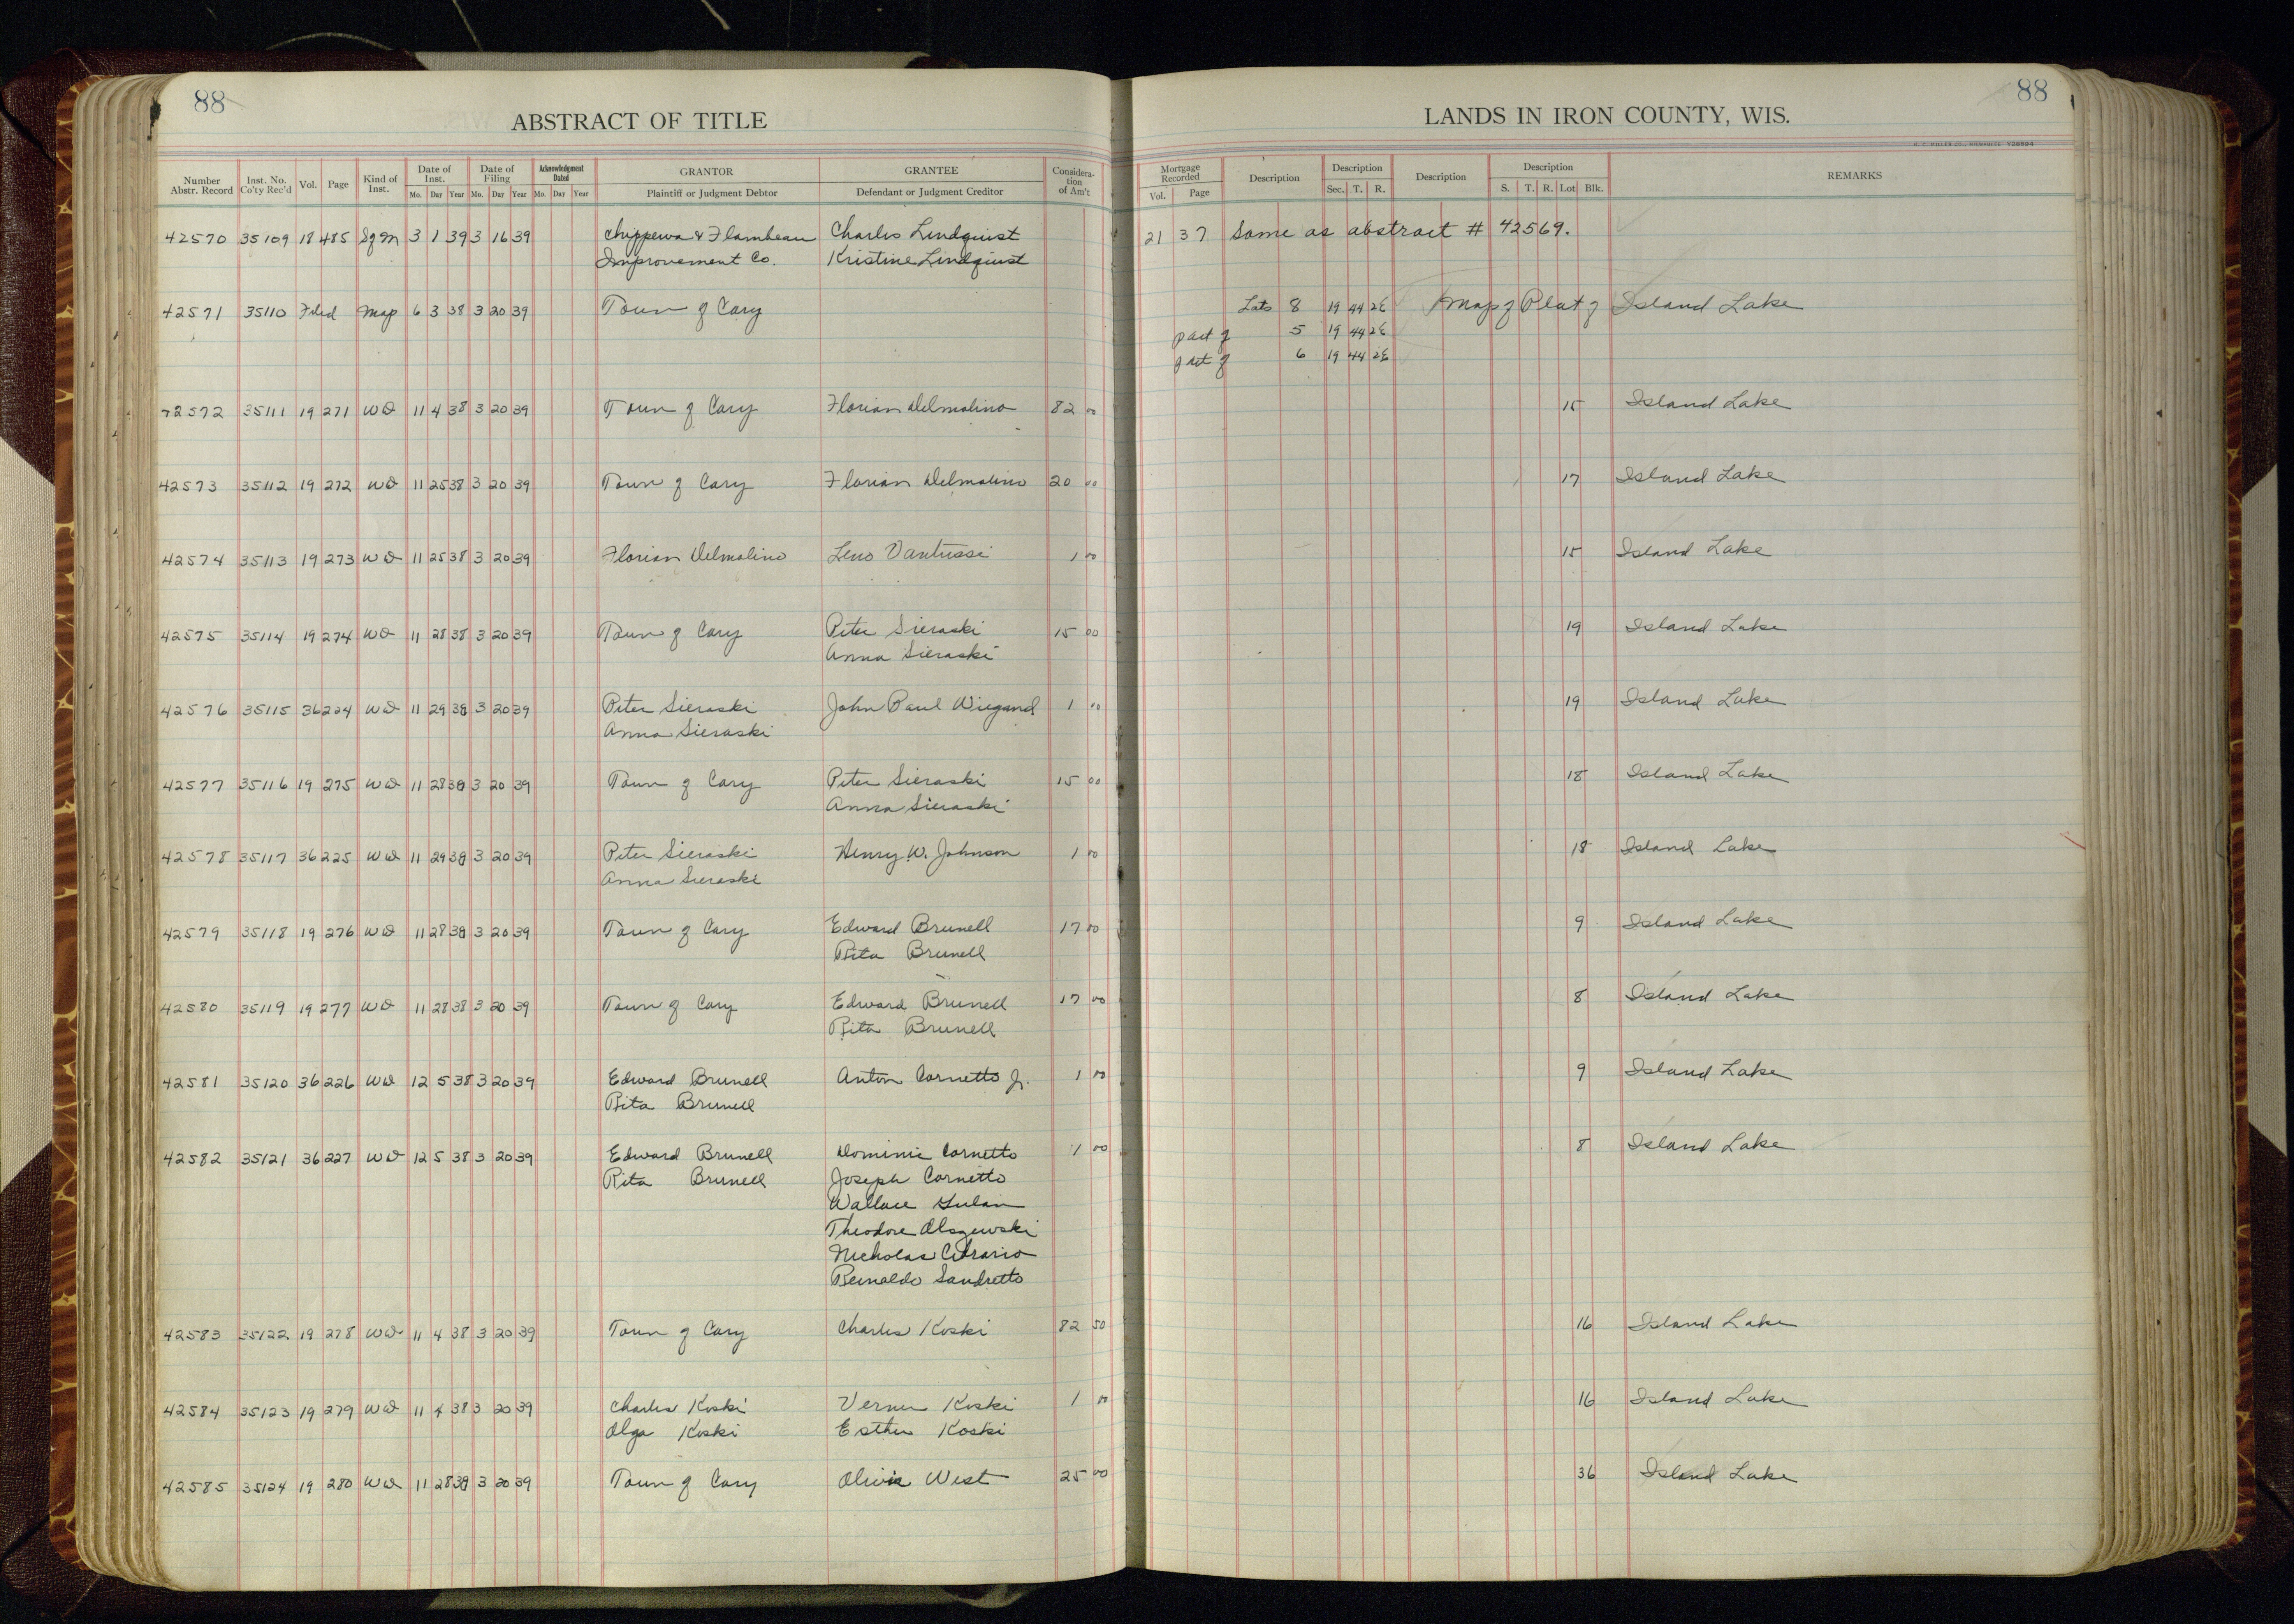 88
ABSTRACT OF TITLE
Number Abstr. Record Inst. No. Co'ty Rec'd Vol. Page Kind of Inst. Date of Inst. Mo. Day Year Date of Filing Mo. Day Year Acknowledgment Dated Mo. Day Year GRANTOR Plaintiff or Judgment Debtor GRANTEE Defendant or Judgment Creditor Consideration of Am't
42570 35109 18 485 3 1 39 3 16 39 Chippewa & Flambeau Charles Lindquist
Improvement Co. Kristine Lindquist
42571 35110 Filed Map 6 3 38 3 20 39 Town of Cary
42572 35111 19 271 WD 11 4 38 3 20 39 Town of Cary Florian Delmolino 82 00
42573 35112 19 272 WD 11 25 38 3 20 39 Town of Cary Florian Delmolino 20 00
42574 35113 19 273 WD 11 25 38 3 20 39 Florian Delmolino Leno Vantussi 1 00
42575 35114 19 274 WD 11 28 38 3 20 39 Town of Cary Peter Sieraski 15 00
Anna Sieraski
42576 35115 36 224 WD 11 29 38 3 20 39 Peter Sieraski John Paul Wiegand 1 00
Anna Sieraski
42577 35116 19 275 WD 11 28 38 3 20 39 Town of Cary Peter Sieraski 15 00
Anna Sieraski
42578 35117 36 225 WD 11 29 38 3 20 39 Peter Sieraski Henry W. Johnson 1 00
Anna Sieraski
42579 35118 19 276 WD 11 28 38 3 20 39 Town of Cary Edward Brunell 17 00
Rita Brunell
42580 35119 19 277 WD 11 28 38 3 20 39 Town of Cary Edward Brunell 17 00
Rita Brunell
42581 35120 36 226 WD 12 5 38 3 20 39 Edward Brunell Anton Cornetto Jr. 1 00
Rita Brunell
42582 35121 36 227 WD 12 5 38 3 20 39 Edward Brunell Dominic Cornetto 1 00
Rita Brunell Joseph Cornetto
Wallace Gulan
Theodore Olszewski
Nicholas Cibrario
Reinaldo Sandretto
42583 35122 19 278 WD 11 4 38 3 20 39 Town of Cary Charles Koski 82 50
42584 35123 19 279 WD 11 4 38 3 20 39 Charles Koski Verner Koski 1 00
Olga Koski Esther Koski
42585 35124 19 280 WD 11 28 38 3 20 39 Town of Cary Olivia West 25 00
88
LANDS IN IRON COUNTY, WIS.
Mortgage Recorded Vol. Page Description Description Sec. T. R. Description Description S. T. R. Lot Blk. REMARKS
21 37 Same as abstract # 42569.
Lots 8 19 44 2E Map of Plat of Island Lake
part of 5 19 44 2E
part of 6 19 44 2E
15 Island Lake
17 Island Lake
15 Island Lake
19 Island Lake
19 Island Lake
18 Island Lake
18 Island Lake
9 Island Lake
8 Island Lake
9 Island Lake
8 Island Lake
16 Island Lake
16 Island Lake
36 Island Lake